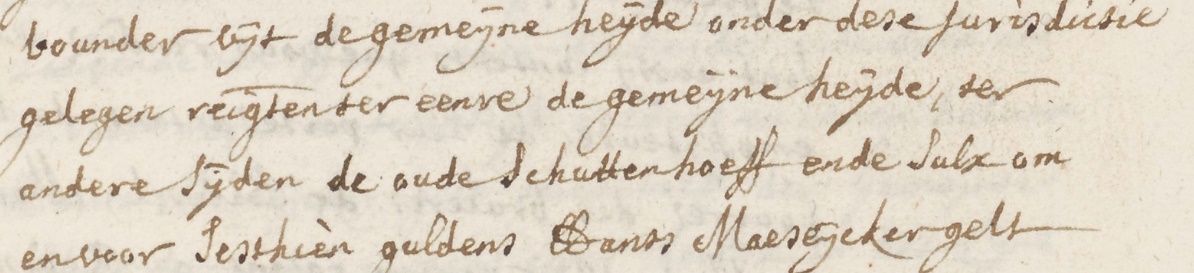 bounder uÿt de gemeÿne heÿde onder dese Jurisdictie
gelegen reigten ter eenre de gemeÿne heÿde, ter
andere sÿden de oude Schuttenhoeff ende sulx om
en voor sesthièn guldens Bants Maeseÿcker gelt